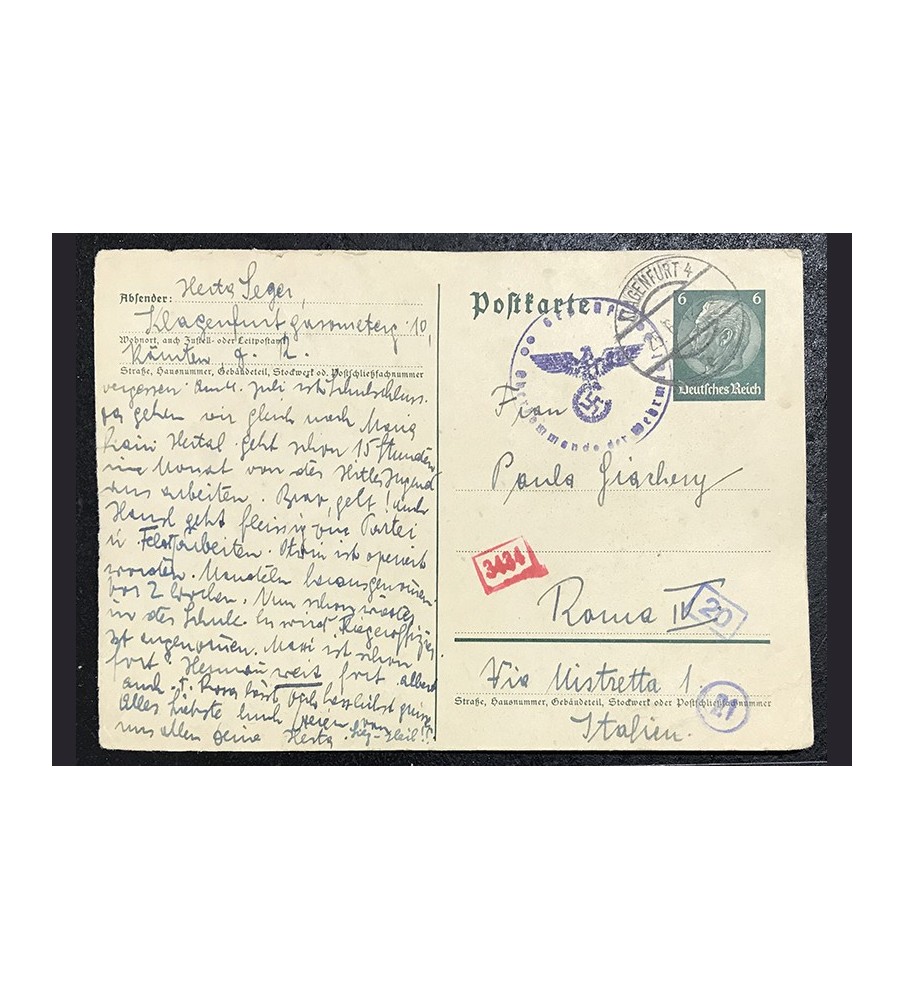 Absender: Herta Seger,
Klagenfurt gasometerg. 10
Wohnort, auch Zustell- oder Leitpostamt
Kärnten
Straße, Hausnummer, Gebäudeteil, Stockwerk od. Postschließfachnummer
vergessen. Juli ist Schulschluss.
da gehen wir gleich nach Maria
Hertal geht schon 15 Stunden
im Monat von der Hitlerjugend
aus arbeiten. Brav, gelt! auch
Hansl geht fleissig von Partei
u Feldarbeiten. ist operiert
worden. Mandeln herausgenommen
vor 2 Wochen. Nun schon wieder
in der Schule. Er wird
ist angenommen. Maxi ist schon
fort. Hermann weit fort. albert
auch
alles Liebste Euch von
uns allen Deine Herta. Sieg-Heil!!
Postkarte
KLAGENFURT 4
6 6
Deutsches Reich
Oberkommando der Wehrm
Frau
Paula
3434
Roma IV
20
Via Mistretta 1
Straße, Hausnummer, Gebäudeteil, Stockwerk oder Postschließfachnummer
21
Italien.